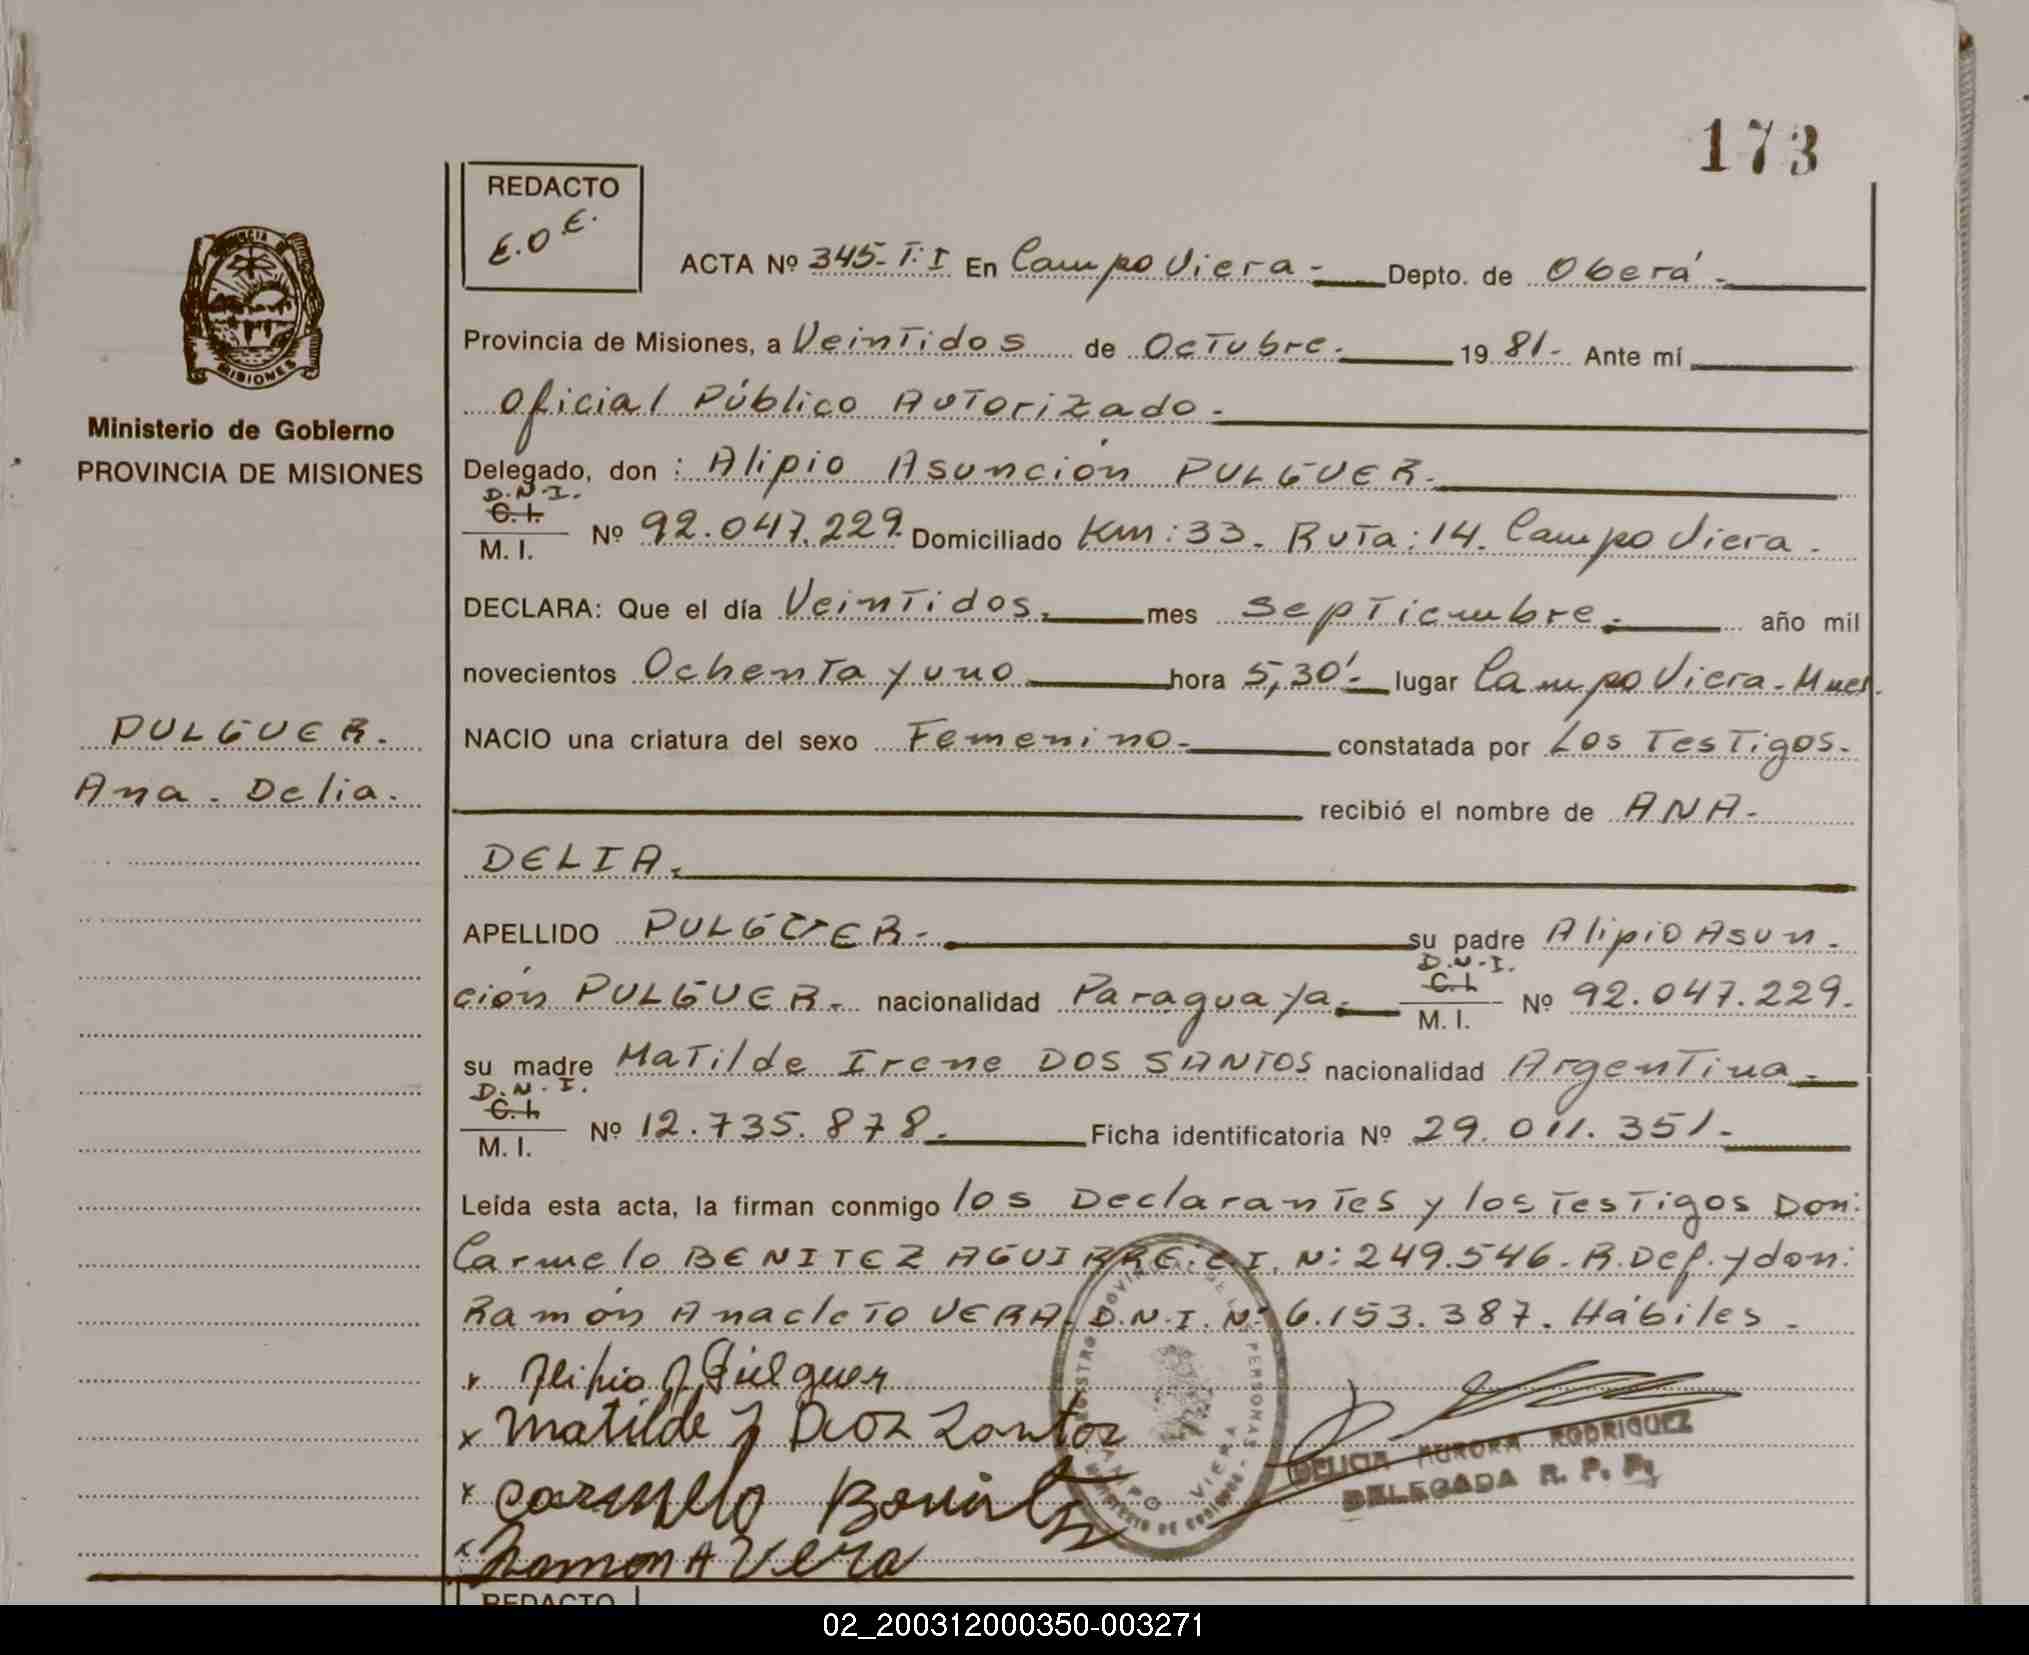 173
REDACTO
E.O.E.
ACTA Nº 345-T.I En Campo Viera.- Depto. de Oberá.-
Provincia de Misiones, a Veintidos de Octubre.- 19 81.- Ante mí
Oficial Público Autorizado.-
Ministerio de Gobierno
PROVINCIA DE MISIONES
MISIONES
Delegado, don : Alipio Asunción PULGUER.-
D.N.I.
C.I.
M. I. Nº 92.047.229. Domiciliado Km: 33. Ruta: 14. Campo Viera.
DECLARA: Que el día Veintidos.- mes septiembre.- año mil
novecientos Ochenta y uno hora 5,30'.- lugar Campo Viera.- Mnes.
PULGUER.
Ana. Delia.
NACIO una criatura del sexo Femenino.- constatada por Los Testigos.
recibió el nombre de ANA.
DELIA.
APELLIDO PULGUER.- su padre Alipio Asun.
ción PULGUER.- nacionalidad Paraguaya.- D.N.I. C.I. M. I. Nº 92.047.229.
su madre Matilde Irene DOS SANTOS nacionalidad Argentina.-
D.N.I.
C.I.
M. I. Nº 12.735.878.- Ficha identificatoria Nº 29.011.351.-
Leída esta acta, la firman conmigo los Declarantes y los Testigos Don:
Carmelo BENITEZ AGUIRRE: C.I. N: 249.546. R.Def. y don:
Ramón Anacleto VERA. D.N.I. N: 6.153.387. Hábiles.
x Alipio A Pulguer
x Matilde I Dos Santos
x Carmelo Benitez
x Ramon A Vera
REGISTRO PROVINCIAL DE LAS PERSONAS
CAMPO VIERA
MINISTERIO DE GOBIERNO
DELICIA AURORA RODRIGUEZ
DELEGADA R. P. P.
REDACTO
02_200312000350-003271